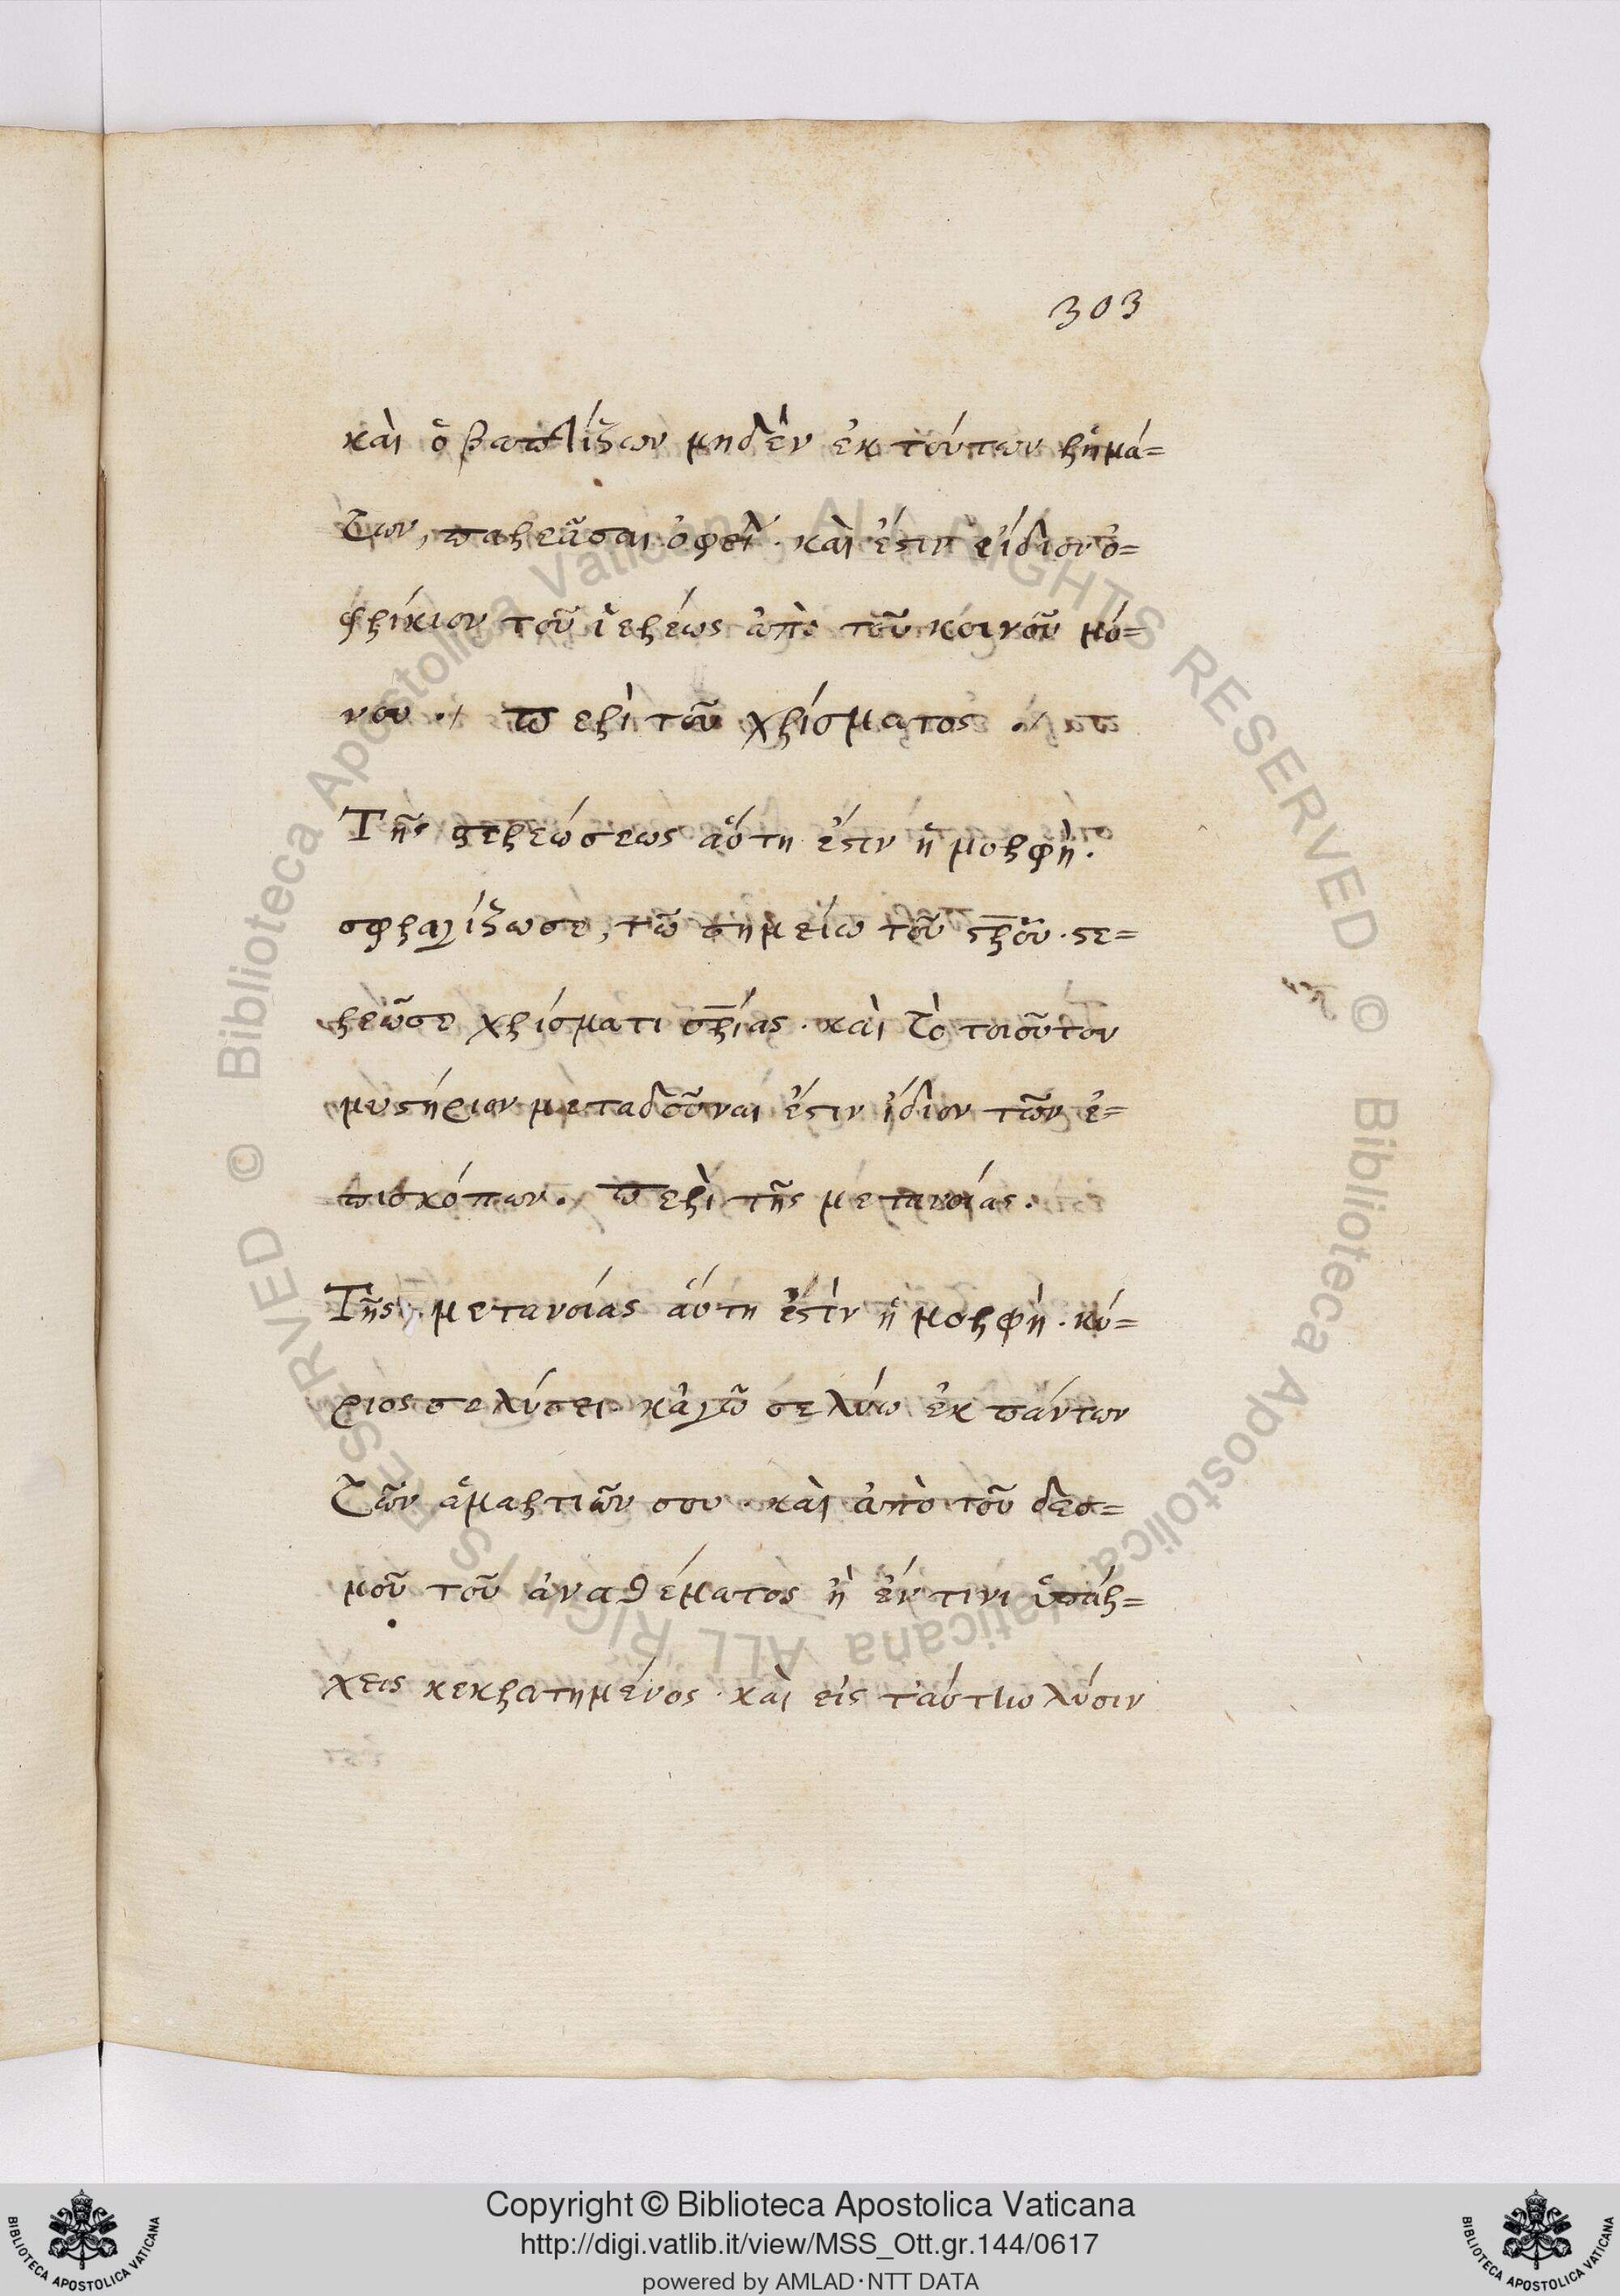 303
καὶ ὁ βαπτίζων μηδὲν ἐκ τούτων ῥημά=
των, παρεᾶσαι ὀφεί. καὶ ἔστιν εἴδιον ὀ=
φρίκιον τοῦ ἱερέως ἀπὸ τοῦ κοινοῦ μό=
νου ./. περὶ τοῦ χρίσματος ./.
Τῆς στερεώσεως αὕτη ἔστιν ἡ μορφὴ.
σφραγίζω σε, τῶ σημείω τοῦ στ̅ρ̅οῦ. στε=
ρεῶ σε χρίσματι σ̅ρ̅ίας. καὶ τὸ τοιοῦτον
μυστήριον μεταδοῦναι ἔστιν ἴδιον τῶν ἐ=
πισκόπων. περὶ τῆς μετανοίας.
Τῆς μετανοίας αὕτη ἐστὶν ἡ μορφὴ. κύ=
ριος σε λύσει. κἀγῶ σε λύω ἐκ πάντων
τῶν ἁμαρτιῶν σου. καὶ ἀπὸ τοῦ δεσ=
μοῦ τοῦ ἀναθέματος ἢ ἔν τινι ὑπάρ=
χεις κεκρατημένος. καὶ εἰς ταύτην λύσιν
Copyright © Biblioteca Apostolica Vaticana
http://digi.vatlib.it/view/MSS_Ott.gr.144/0617
powered by AMLAD·NTT DATA
BIBLIOTECA APOSTOLICA VATICANA
BIBLIOTECA APOSTOLICA VATICANA
© Biblioteca Apostolica Vaticana ALL RIGHTS RESERVED
© Biblioteca Apostolica Vaticana ALL RIGHTS RESERVED